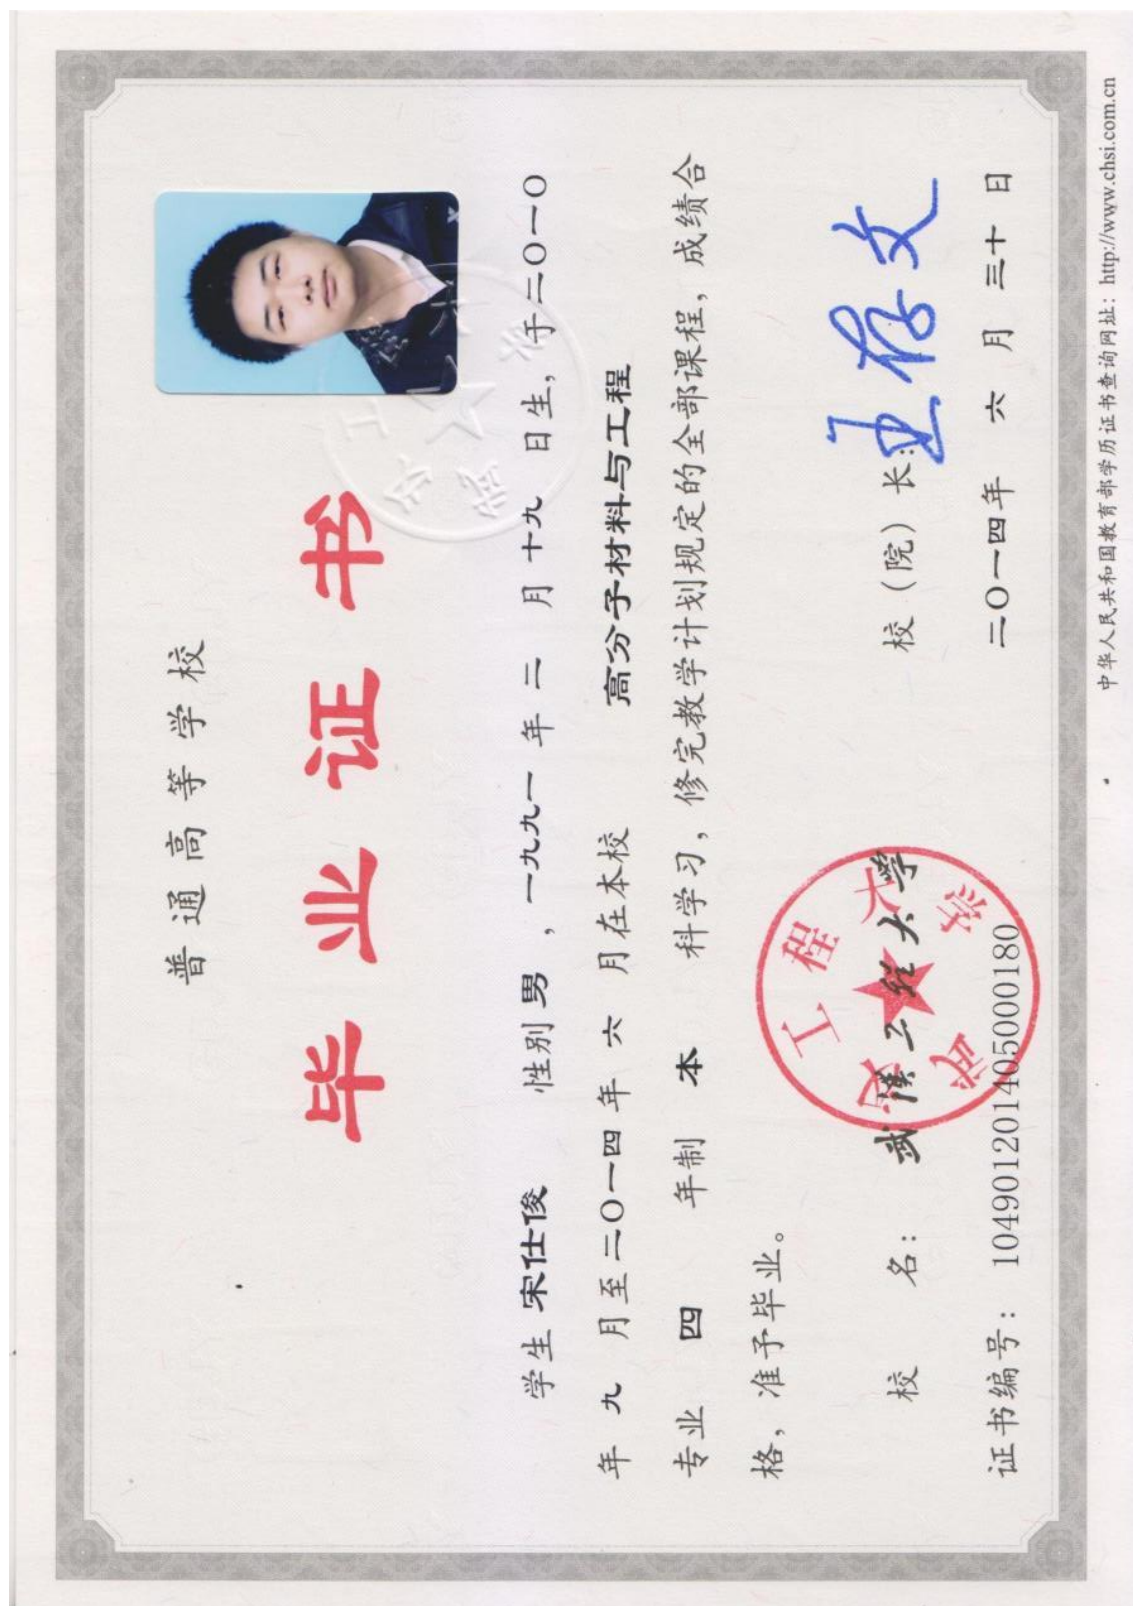 普通高等学校
毕业证书
学生 宋仕俊 性别 男 ，一九九一 年 二 月 十九 日生，于二〇一〇
年 九 月至二〇一四年 六 月在本校 高分子材料与工程
专业 四 年制 本 科学习，修完教学计划规定的全部课程，成绩合
格，准予毕业。
校 名： 武汉工程大学 校（院）长：王存文
武汉工程大学
证书编号： 104901201405000180 二〇一四年 六 月 三十 日
中华人民共和国教育部学历证书查询网址：http://www.chsi.com.cn